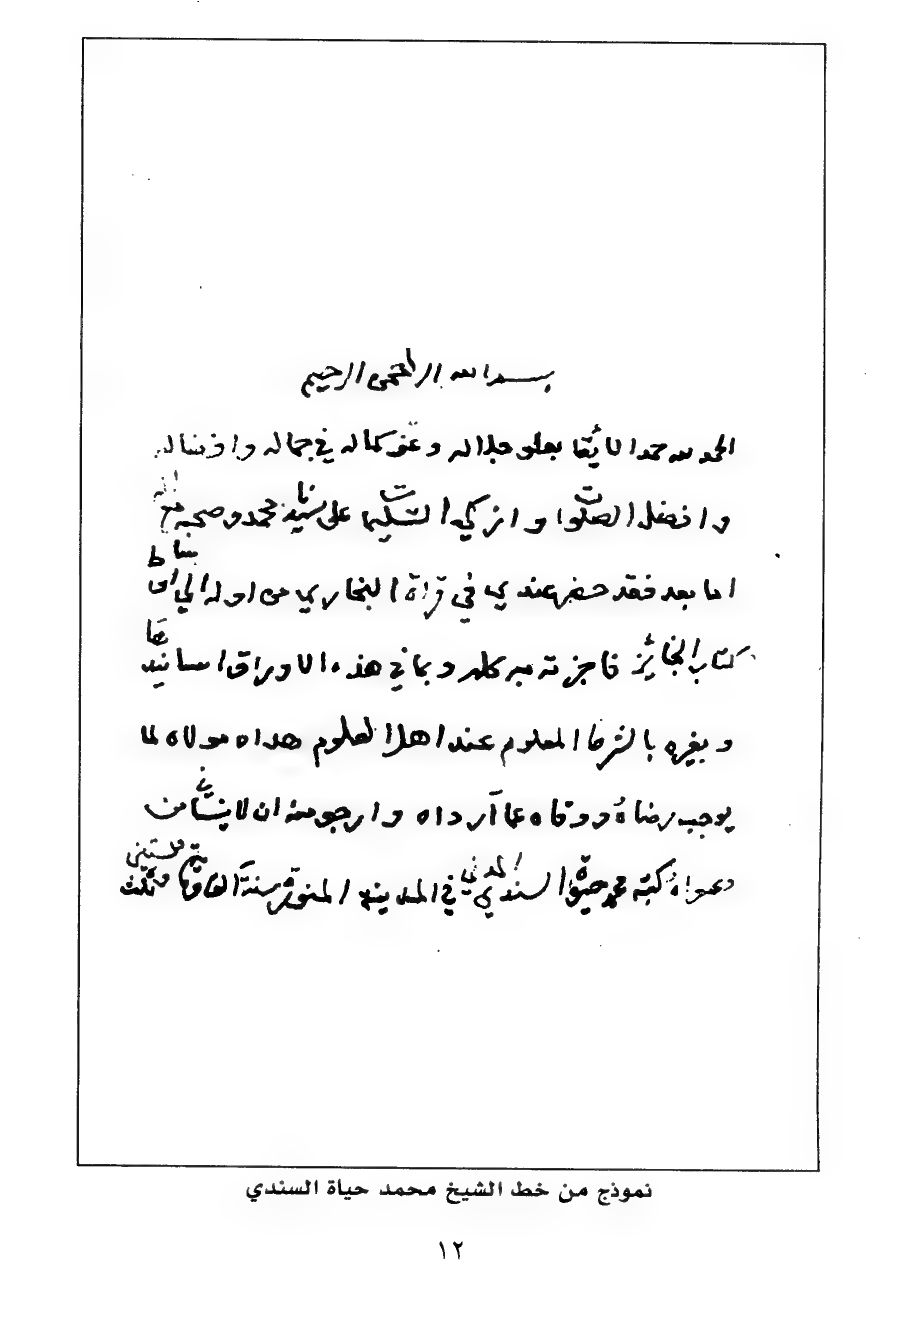 بسم الله الرحمن الرحيم
الحمد لله حمدا لائقا بعلو جلاله وعز كماله في جماله وافضاله
وافضل الصلوات وازكى التسليمات على سيدنا محمد وصحبه مع آله
اما بعد فقد حضر عندي في قراة البخاري من اوله الى اواسط
كتاب الجنائز فاجزته به كله وبما في هذه الاوراق اسانيدها
وبغيره بالشرط المعلوم عند اهل العلوم هداه مولاه لما
يوجب رضاه ووقاه عما أرداه وارجو منه ان لا ينساني من
دعواه كتبه محمد حيوة السندي المدني في المدينة المنورة سنة الف ومائة وثلث وستين
نموذج من خط الشيخ محمد حياة السندي
١٢